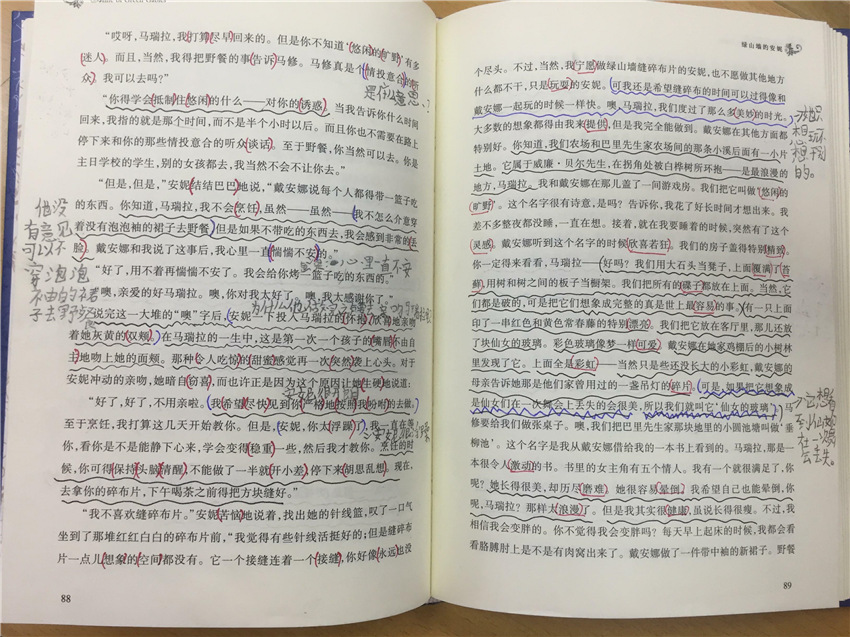 Anne of Green Gables
“哎呀，马瑞拉，我打算尽早回来的。但是你不知道‘悠闲的旷野’有多
迷人。而且，当然，我得把野餐的事告诉马修。马修真是个情投意合的听
众。我可以去吗？”
是什么意思？
“你得学会抵制住悠闲的什么——对你的诱惑。当我告诉你什么时间
回来，我指的就是那个时间，而不是半个小时以后。而且你也不需要在路上
停下来和你的那些情投意合的听众谈话。至于野餐，你当然可以去。你是
主日学校的学生，别的女孩都去，我当然不会不让你去。”
“但是，但是，”安妮结结巴巴地说，“戴安娜说每个人都得带一篮子吃
的东西。你知道，马瑞拉，我不会烹饪，虽然——虽然——我不怎么介意穿
着没有泡泡袖的裙子去野餐，但是如果不带吃的东西去，我会感到非常的丢
脸。戴安娜和我说了这事后，我心里一直惴惴不安的。”
他没
有意见
可以不
穿泡泡
袖的裙
子去野
“好了，用不着再惴惴不安了。我会给你烤一篮子吃的东西的。”
心里一直不安
“噢，亲爱的好马瑞拉。噢，你对我太好了。噢，我太感谢你了。”
说完这一大堆的“噢”字后，安妮一下投入马瑞拉的怀抱，欣喜地亲吻
着她灰黄的双颊。在马瑞拉的一生中，这是第一次一个孩子的嘴唇不由自
主地吻上她的面颊。那种令人吃惊的甜蜜感觉再一次突然袭上心头。对于
安妮冲动的亲吻，她暗自窃喜，而也许正是因为这个原因让她生硬地说道：
“好了，好了，不用亲啦。我希望尽快见到你严格地按照我吩咐的去做。
至于烹饪，我打算这几天开始教你。但是，安妮，你太浮躁了，我一直在等
你，看你是不是能静下心来，学会变得稳重一些，然后我才教你。烹饪的时
候，你可得保持头脑清醒，不能做了一半就开小差，停下来胡思乱想。现在，
去拿你的碎布片，下午喝茶之前得把方块缝好。”
“我不喜欢缝碎布片。”安妮苦恼地说着，找出她的针线篮，叹了一口气
坐到了那堆红红白白的碎布片前，“我觉得有些针线活挺好的；但是缝碎布
片一点儿想象的空间都没有。它一个接缝连着一个接缝，你好像永远也没
88
绿山墙的安妮
个尽头。不过，当然，我宁愿做绿山墙缝碎布片的安妮，也不愿做其他地方
什么都不干，只是玩耍的安妮。可我还是希望缝碎布的时间可以过得像和
戴安娜一起玩的时候一样快。噢，马瑞拉，我们度过了那么多美妙的时光。
大多数的想象都得由我来提供，但是我完全能做到。戴安娜在其他方面都
特别好。你知道，我们农场和巴里先生家农场间的那条小溪后面有一小片
土地。它属于威廉·贝尔先生，在拐角处被白桦树所环抱——是最浪漫的
地方，马瑞拉。我和戴安娜在那儿盖了一间游戏房。我们把它叫做‘悠闲的
旷野’。这个名字很有诗意，是吗？告诉你，我花了好长时间才想出来。我
差不多整夜都没睡，一直在想。接着，就在我要睡着的时候，突然有了这个
灵感。戴安娜听到这个名字的时候欣喜若狂。我们的房子盖得特别精致。
你一定得来看看，马瑞拉——好吗？我们用大石头当凳子，上面覆满了苔
藓，用树和树之间的板子当橱架。我们把所有的碟子都放在上面。当然，它
们都是破的，可是把它们想象成完整的真是世上最容易的事。有一只上面
印了一串红色和黄色常春藤的特别漂亮。我们把它放在客厅里，那儿还放
了块仙女的玻璃。彩色玻璃像梦一样可爱。戴安娜在她家鸡棚后的小树林
里发现了它。上面全是彩虹——当然只是些还没长大的小彩虹，戴安娜的
母亲告诉她那是他们家曾用过的一盏吊灯的碎片。可是，如果把它想象成
是仙女们在一次舞会上丢失的会很美，所以我们就叫它‘仙女的玻璃’。马
修要给我们做张桌子。噢，我们把巴里先生家那块地里的小圆池塘叫做‘垂
柳池’。这个名字是我从戴安娜借给我的一本书上看到的。马瑞拉，那是一
本很令人激动的书。书里的女主角有五个情人。我有一个就很满足了，你
呢？她长得很美，却历尽磨难。她很容易晕倒。我希望自己也能晕倒，你
呢，马瑞拉？那样太浪漫了。但是我其实很健康，虽说长得很瘦。不过，我
相信我会变胖的。你不觉得我会变胖吗？每天早上起床的时候，我都会看
看胳膊肘上是不是有肉窝出来了。戴安娜做了一件带中袖的新裙子。野餐
89